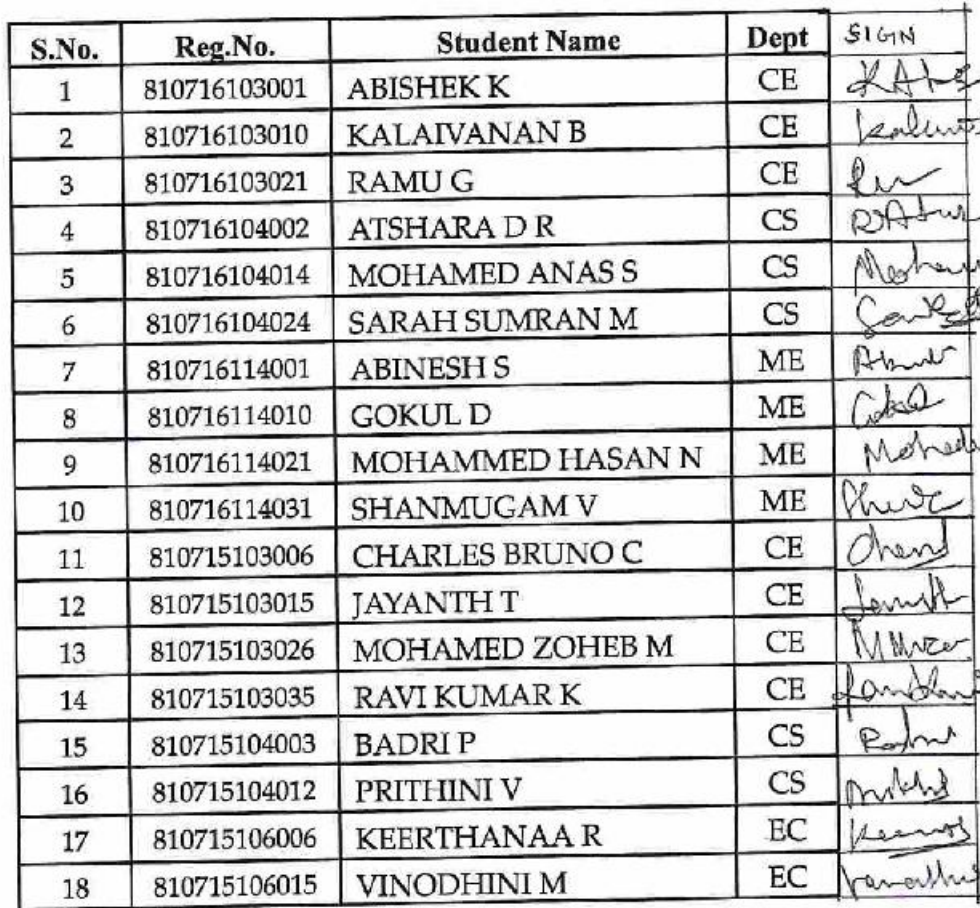 S.No. Reg.No. Student Name Dept SIGN
1 810716103001 ABISHEK K CE
2 810716103010 KALAIVANAN B CE
3 810716103021 RAMU G CE
4 810716104002 ATSHARA D R CS
5 810716104014 MOHAMED ANAS S CS
6 810716104024 SARAH SUMRAN M CS
7 810716114001 ABINESH S ME
8 810716114010 GOKUL D ME
9 810716114021 MOHAMMED HASAN N ME
10 810716114031 SHANMUGAM V ME
11 810715103006 CHARLES BRUNO C CE
12 810715103015 JAYANTH T CE
13 810715103026 MOHAMED ZOHEB M CE
14 810715103035 RAVI KUMAR K CE
15 810715104003 BADRI P CS
16 810715104012 PRITHINI V CS
17 810715106006 KEERTHANAA R EC
18 810715106015 VINODHINI M EC